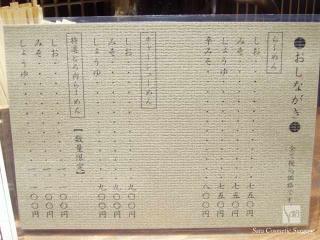 おしながき
全て税込価格です
らーめん
しお・・・・・・・・・七五〇円
みそ・・・・・・・・・七五〇円
しょうゆ・・・・・・・七五〇円
辛みそ・・・・・・・・八〇〇円
チャーシューめん
しお・・・・・・・・・九〇〇円
みそ・・・・・・・・・九〇〇円
しょうゆ・・・・・・・九〇〇円
特選とろ肉らーめん【数量限定】
しお・・・・・・・・・一一〇〇円
みそ・・・・・・・・・一一〇〇円
しょうゆ・・・・・・・一一〇〇円
Sara Cosmetic Surgery